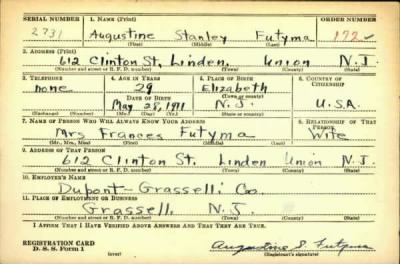 SERIAL NUMBER 1. NAME (Print) ORDER NUMBER
2731 Augustine Stanley Futyma 172
(First) (Middle) (Last)
2. ADDRESS (Print)
612 Clinton St, Linden, Union N.J.
(Number and street or R. F. D. number) (Town) (County) (State)
3. TELEPHONE 4. AGE IN YEARS 5. PLACE OF BIRTH 6. COUNTRY OF CITIZENSHIP
none 29 Elizabeth
DATE OF BIRTH (Town or county)
May 28, 1911 N.J. U.S.A.
(Exchange) (Number) (Mo.) (Day) (Yr.) (State or country)
7. NAME OF PERSON WHO WILL ALWAYS KNOW YOUR ADDRESS 8. RELATIONSHIP OF THAT PERSON
Mrs Frances Futyma Wife
(Mr., Mrs., Miss) (First) (Middle) (Last)
9. ADDRESS OF THAT PERSON
612 Clinton St. Linden Union N.J.
(Number and street or R. F. D. number) (Town) (County) (State)
10. EMPLOYER'S NAME
Dupont-Grasselli Co.
11. PLACE OF EMPLOYMENT OR BUSINESS
Grasselli N.J.
(Number and street or R. F. D. number) (Town) (County) (State)
I AFFIRM THAT I HAVE VERIFIED ABOVE ANSWERS AND THAT THEY ARE TRUE.
REGISTRATION CARD
D. S. S. Form 1 (over) Augustine S. Futyma
(Registrant's signature)